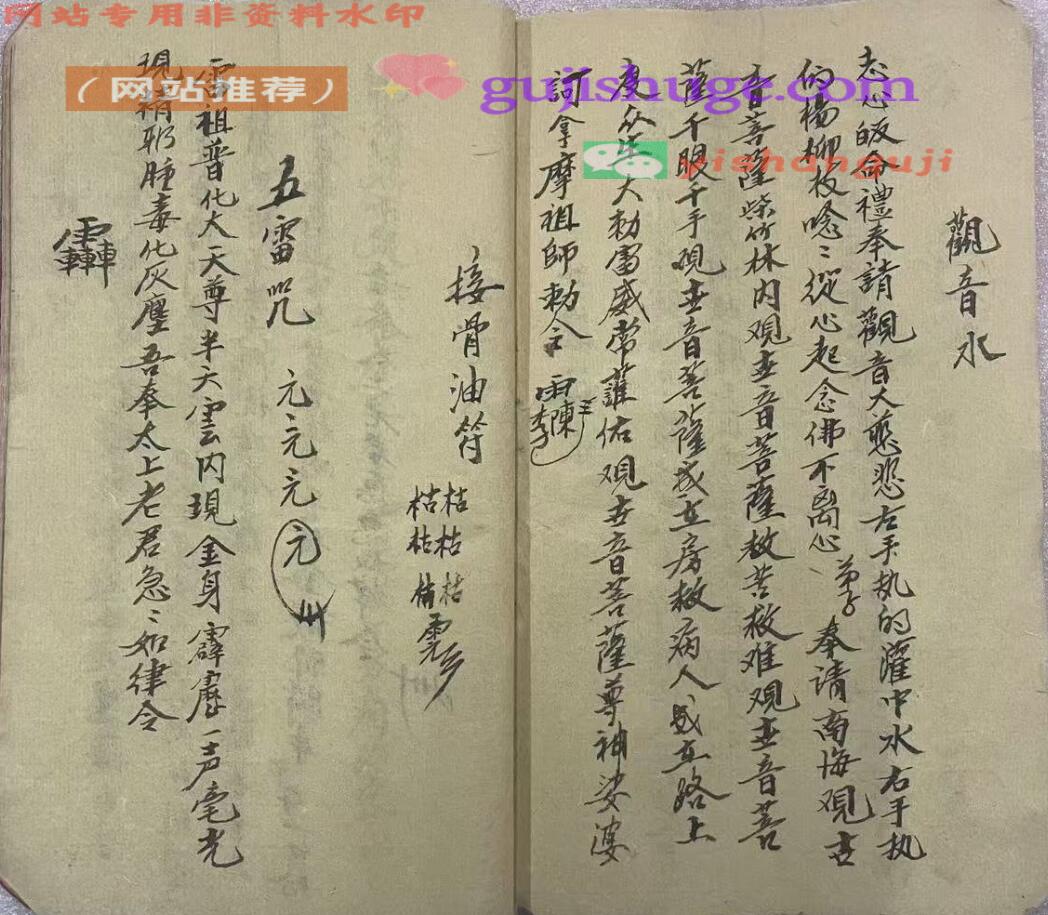 网站专用非资料水印
（网站推荐）
gujishuge.com
yishanguji
觀音水
志心皈命禮奉請觀音大慈悲右手执的灌中水右手执
的楊柳枝唸〻從心起念佛不离心弟子奉請南海观世
音菩薩紫竹林内观世音菩薩救苦救难观世音菩
薩千眼千手观世音菩薩或在房救病人或在路上
度众生大勅雷威常䕶佑观世音菩薩尊神娑婆
訶拿摩祖師勅令
接骨油符
枯枯
枯枯
枯枯
五雷咒 元元元元
雷祖普化大天尊半天雲内現金身霹靂一声毫光
現精邪肿毒化灰塵吾奉太上老君急〻如律令